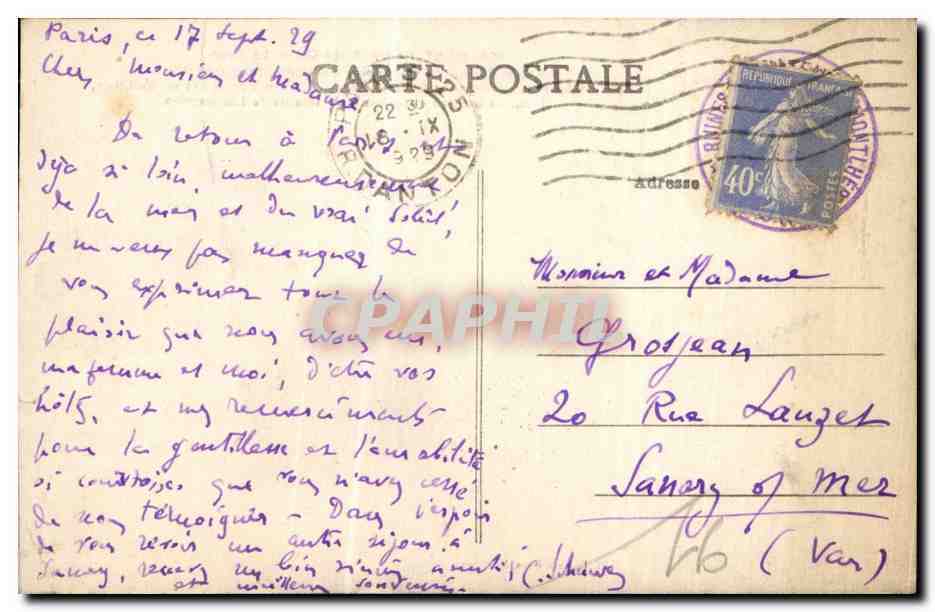 Paris, ce 17 Sept. 29
Cher Monsieur et Madame
CARTE POSTALE
De retour à Paris et
déjà si loin, malheureusement
de la mer et du vrai soleil,
je ne veux pas manquer de
vous exprimer tout le
plaisir que nous avons eu,
ma femme et moi, d'être vos
hôtes, et mes remerciements
pour la gentillesse et l'amabilité
si courtoises que vous n'avez cessé
de nous témoigner – Dans l'espoir
de vous revoir un autre séjour à
Sanary, recevez un bien sincère
et meilleurs souvenirs.
22 30
18 · IX
929
REPUBLIQUE FRANÇAISE
40c
POSTES
MONTLHERY
Adresse
Monsieur et Madame
Grosjean
20 Rue Lauzet
Sanary s/ Mer
(Var)
46
CPAPHIL